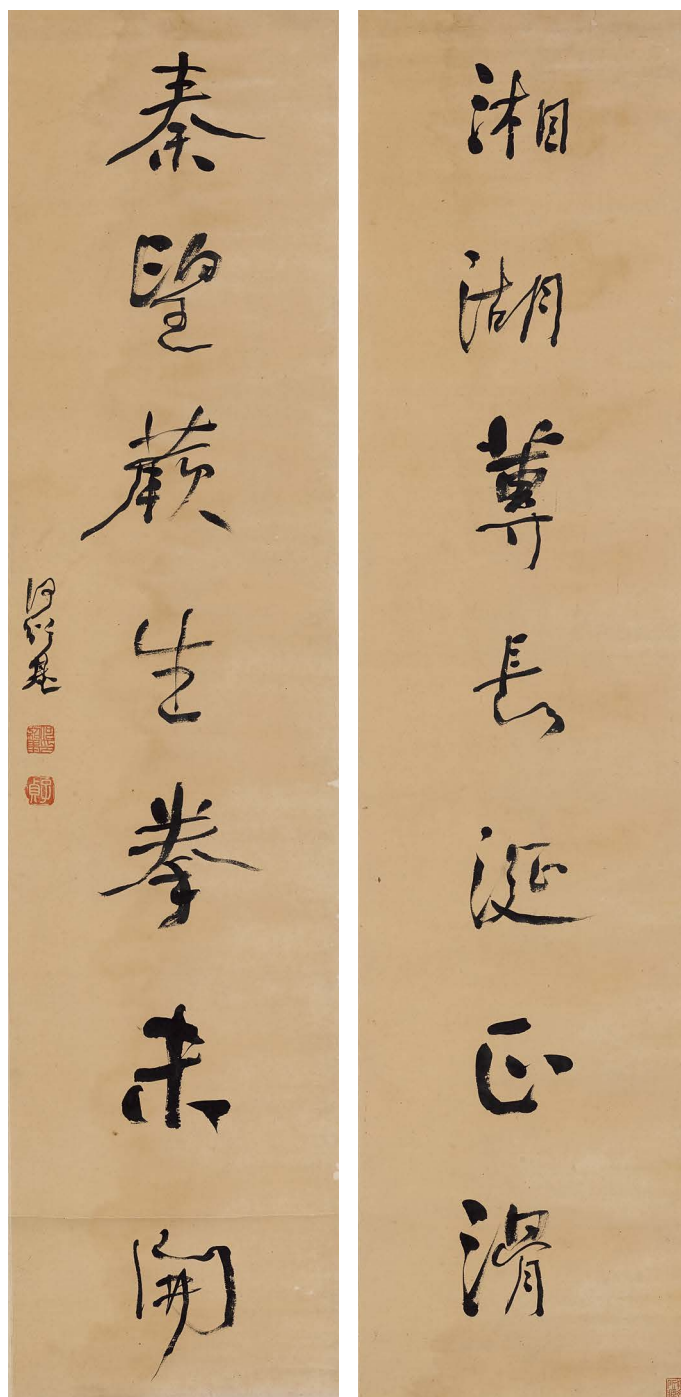 湘湖蓴長涎正滑
秦望蕨生拳未開
何紹基
子貞